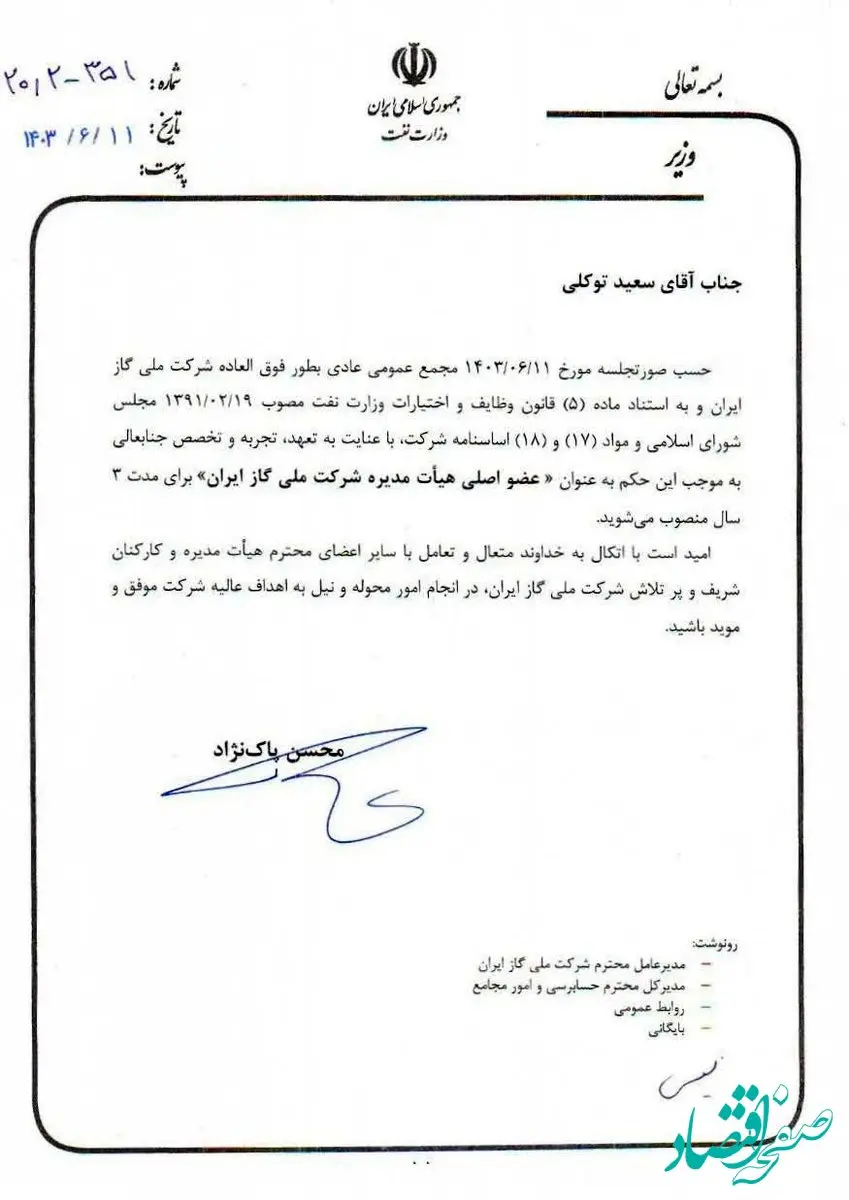 بسمه تعالی
جمهوری اسلامی ایران
وزارت نفت
وزیر
شماره: ۲۰٫۲-۳۵۱
تاریخ: ۱۴۰۳/۶/۱۱
پیوست:
جناب آقای سعید توکلی
حسب صورتجلسه مورخ ۱۴۰۳/۰۶/۱۱ مجمع عمومی عادی بطور فوق العاده شرکت ملی گاز
ایران و به استناد ماده (۵) قانون وظایف و اختیارات وزارت نفت مصوب ۱۳۹۱/۰۲/۱۹ مجلس
شورای اسلامی و مواد (۱۷) و (۱۸) اساسنامه شرکت، با عنایت به تعهد، تجربه و تخصص جنابعالی
به موجب این حکم به عنوان « عضو اصلی هیأت مدیره شرکت ملی گاز ایران» برای مدت ۳
سال منصوب می‌شوید.
امید است با اتکال به خداوند متعال و تعامل با سایر اعضای محترم هیأت مدیره و کارکنان
شریف و پر تلاش شرکت ملی گاز ایران، در انجام امور محوله و نیل به اهداف عالیه شرکت موفق و
موید باشید.
محسن پاک‌نژاد
رونوشت:
– مدیرعامل محترم شرکت ملی گاز ایران
– مدیرکل محترم حسابرسی و امور مجامع
– روابط عمومی
– بایگانی
صفحه اقتصاد